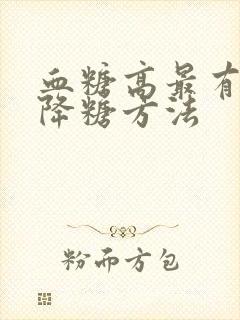 血糖高最有
降糖方法
粉而方包